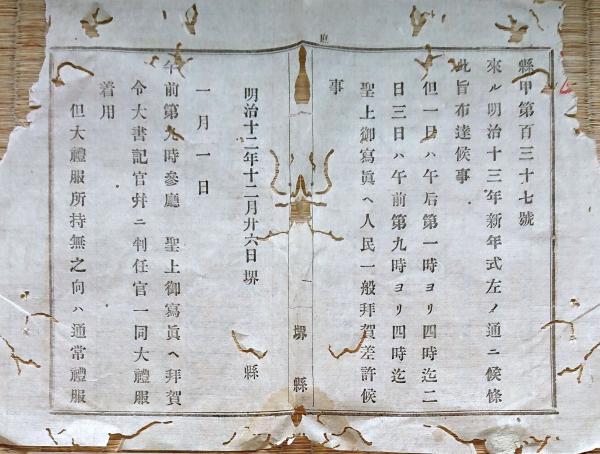 縣甲第百三十七號
來ル明治十三年新年式左ノ通ニ候條
此旨布達候事
但一日ハ午后第一時ヨリ四時迄二
日三日ハ午前第九時ヨリ四時迄
聖上御寫眞ヘ人民一般拜賀差許候
事
明治十二年十二月廿六日堺縣
堺縣
一月一日
午前第九時參廳 聖上御寫眞ヘ拜賀
令大書記官幷ニ判任官一同大禮服
着用
但大禮服所持無之向ハ通常禮服